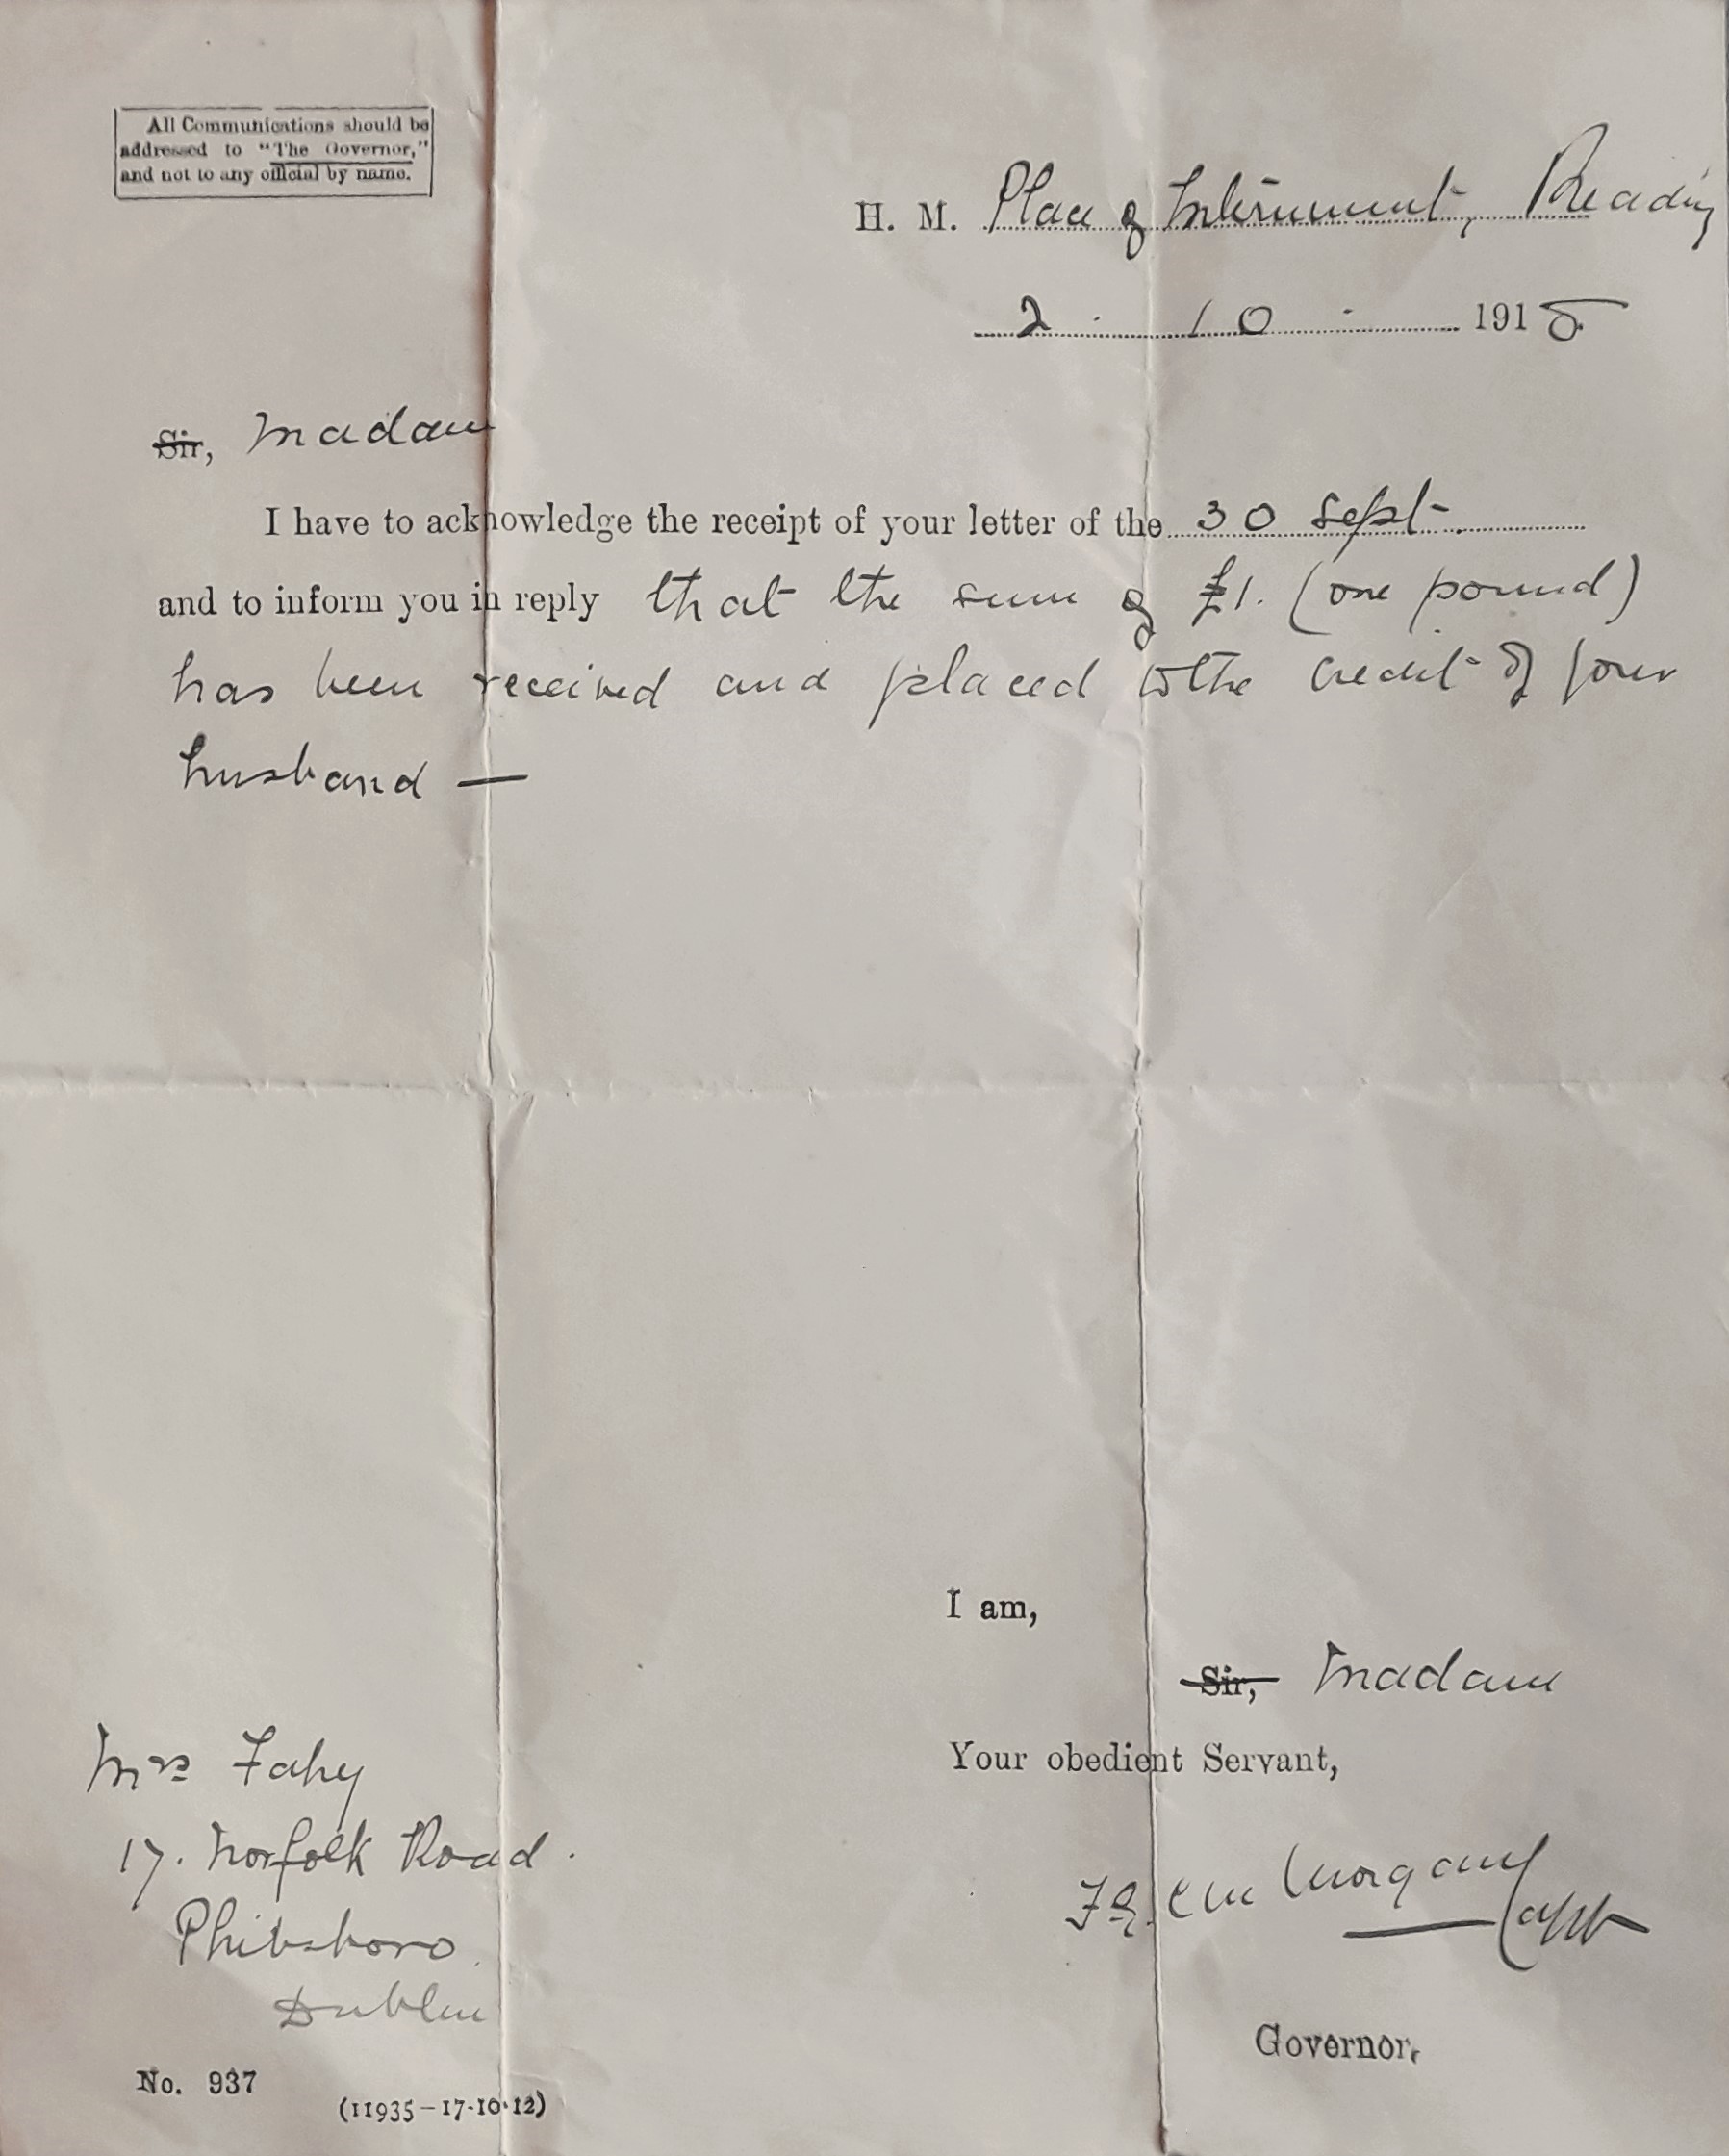 All Communications should be
addressed to "The Governor,"
and not to any official by name.
H. M. Place of Internment, Reading
2 . 10 . 1918
Sir, Madam
I have to acknowledge the receipt of your letter of the 30 Sept.
and to inform you in reply that the sum of £1. (one pound)
has been received and placed to the credit of your
husband —
I am,
Sir, Madam
Your obedient Servant,
Morgan Capt
Governor.
Mrs Fahy
17. Norfolk Road.
Phibsboro.
Dublin
No. 937
(11935-17-10-12)